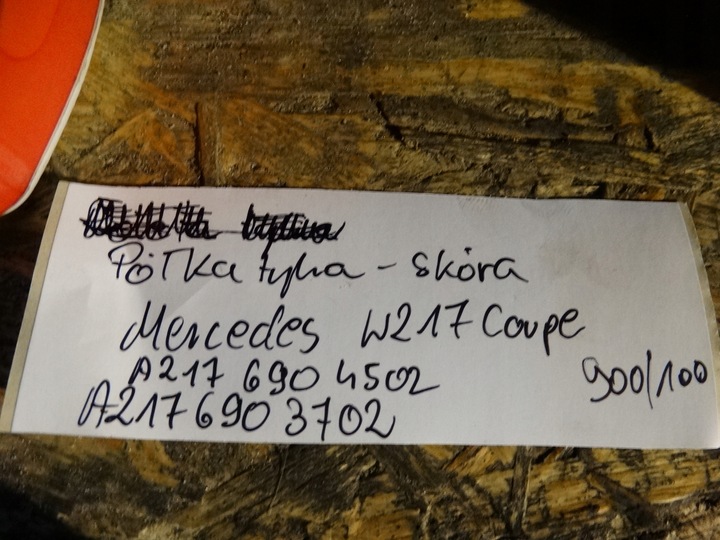 Półka tylna - skóra
Mercedes W217 Coupe
A217 690 4502
900/100
A217690 3702